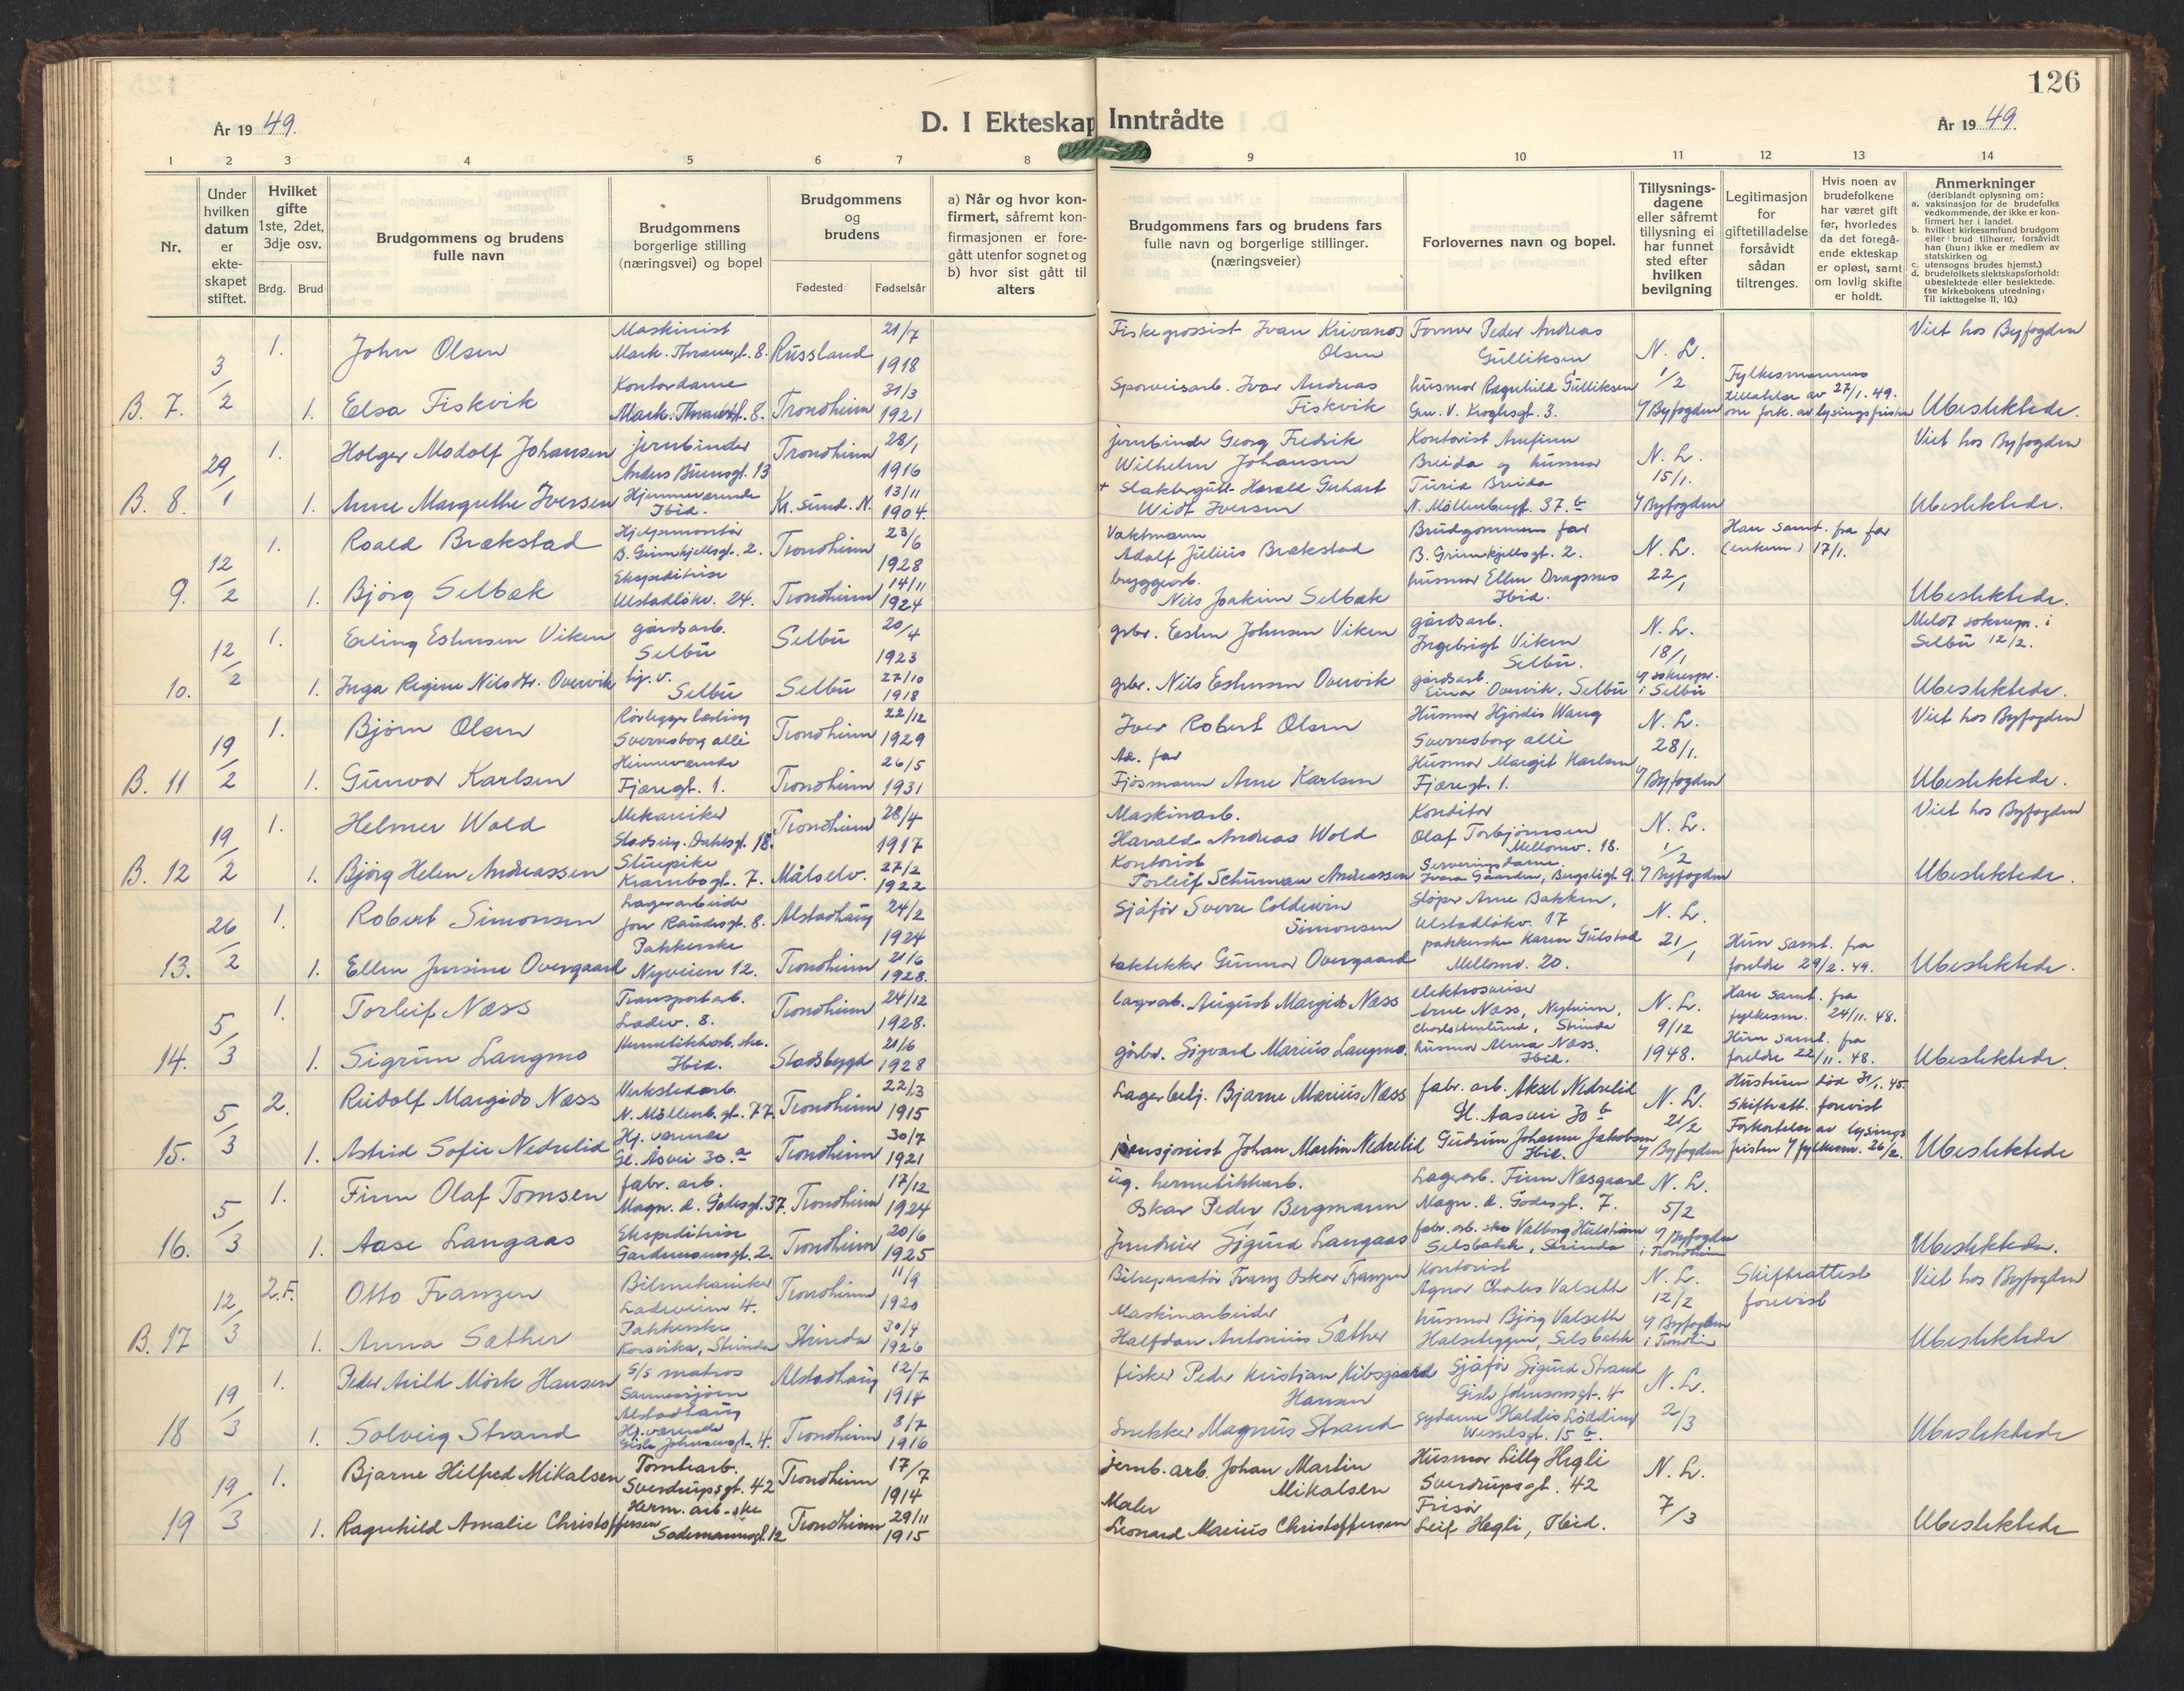 126
År 19 49.
D. I Ekteskap Inntrådte
År 19 49.
1 2 3 4 5 6 7 8 9 10 11 12 13 14
Nr.
Under hvilken datum er ekteskapet stiftet.
Hvilket gifte 1ste, 2det, 3dje osv.
Brdg. Brud
Brudgommens og brudens fulle navn
Brudgommens borgerlige stilling (næringsvei) og bopel
Brudgommens og brudens
Fødested Fødselsår
a) Når og hvor konfirmert, såfremt konfirmasjonen er foregått utenfor sognet og b) hvor sist gått til alters
Brudgommens fars og brudens fars fulle navn og borgerlige stillinger. (næringsveier)
Forlovernes navn og bopel.
Tillysningsdagene eller såfremt tillysning ei har funnet sted efter hvilken bevilgning
Legitimasjon for giftetilladelse forsåvidt sådan tiltrenges.
Hvis noen av brudefolkene har været gift før, hvorledes da det foregående ekteskap er opløst, samt om lovlig skifte er holdt.
Anmerkninger
(deriblandt oplysning om:
a. vaksinasjon for de brudefolks vedkommende, der ikke er konfirmert her i landet.
b. hvilket kirkesamfund brudgom eller brud tilhører, forsåvidt han (hun) ikke er medlem av statskirken og
c. utensogns brudes hjemst.)
d. brudefolkets slektskapsforhold: ubeslektede eller beslektede.
(se kirkebokens utredning: Til iakttagelse II, 10.)
B. 7. 3/2 1. John Olsen Maskinist Mark. Thranesgt. 8. Russland 21/7 1918 Fiskegrossist Ivan Krivanos Olsen Former Peder Andreas Gulliksen N. L. 1/2 Viet hos Byfogden
1. Elsa Fiskvik Kontordame Trondheim 31/3 1921 Sporveisarb. Ivar Andreas Fiskvik husmor Ragnhild Gulliksen Gen. V. Kroghsgt. 3. Byfogden Fylkesmannens tillatelse av 27/1. 49. om fork. av lysingsfristen Ubeslektede.
B. 8. 29/1 1. Holger Modolf Johansen jernbinder Anders Buensgt. 13 Trondheim 28/1 1916 jernbinder Georg Fredrik Wilhelm Johansen Kontorist Arnfinn Breida og husmor Turid Breida N. L. 15/1. Viet hos Byfogden
1. Anne Margrethe Iversen Hjemmeværende Ibid. Kr. sund. N. 13/11 1904. + Slaktergutt Harald Gerhart Widt Iversen N. Möllenbergt. 37. b Byfogden Ubeslektede.
9. 12/2 1. Roald Brækstad Hjelpemontör B. Grimkjellsgt. 2. Trondheim 23/6 1928 Vaktmann Adolf Julius Brækstad Brudgommens far B. Grimkjellsgt. 2. N. L. 22/1 Han samt. fra far (enkem) 17/1.
1. Björg Selbæk Ekspeditrise Ulstadlökv. 24. Trondheim 14/11 1924 byggearb. Nils Joakim Selbæk husmor Ellen Dragsnes Ibid. Ubeslektede.
10. 12/2 1. Erling Estensen Viken gårdsarb. Selbu Selbu 20/4 1923 grbr. Esten Johnsen Viken gårdsarb. Ingebrigt Viken Selbu. N. L. 18/1 Meldt soknepr. i Selbu 12/2.
1. Inga Regine Nilsdtr. Overvik hj. v. Selbu Selbu 27/10 1918 grbr. Nils Estensen Overvik gårdsarb. Einar Overvik, Selbu soknepr. i Selbu Ubeslektede.
B. 11 19/2 1. Björn Olsen Rörleggerlærling Sverresborg allé Trondheim 22/12 1929 Iver Robert Olsen Husmor Hjördis Wang Sverresborg alle N. L. 28/1. Viet hos Byfogden
1. Gunvor Karlsen Fjæregt. 1. Trondheim 26/5 1931 Ad. far Fjösmann Arne Karlsen Husmor Margit Karlsen Fjæregt. 1. Byfogden Ubeslektede.
B. 12 19/2 1. Helmer Wold Mekaniker Stadsing. Dahlsgt. 18. Trondheim 28/4 1917 Maskinarb. Harald Andreas Wold Konditor Olaf Torbjörnsen Mellomv. 18. N. L. 1/2 Viet hos Byfogden
1. Björg Helen Andreassen Stuepike Krambogt. 7. Målselv. 27/2 1922 Kontorist Torleif Schuman Andreassen Serveringsdame Byfogden Ubeslektede.
13. 26/2 1. Robert Simonsen Lagerarbeider Jon Raudesgt. 8. Alstadhaug 24/2 1924 Sjåför Sverre Coldevin Simonsen Stöper Arne Bakken, Ulstadlökv. 17 N. L. 21/1
1. Ellen Jensine Overgaard Pakkerske Nyveien 12. Trondheim 21/6 1928. taktekker Gunnar Overgaard pakkerske Karen Gulstad Mellomv. 20. Hun samt. fra foreldre 29/2. 49. Ubeslektede.
14. 5/3 1. Torleif Næss Transportarb. Ladev. 8. Trondheim 24/12 1928. lagerarb. August Margido Næss elektrosveiser Arne Næss, Nyheim, Strinda N. L. 9/12 1948. Han samt. fra fylkesm. 24/11. 48.
1. Sigrun Langmo Hermetikkarb. ske. Ibid. Stadsbygd 21/6 1928 gårbr. Sigvard Marius Langmo. husmor Alma Næss. Ibid. Hun samt. fra foreldre 22/11. 48. Ubeslektede.
15. 5/3 2. Rudolf Margido Næss Verkstedarb. N. Möllenb. gt. 77. Trondheim 22/3 1915 Lagerbetj. Bjarne Marius Næss fabr. arb. Aksel Nedrelid Gl. Aasvei 30 b N. L. 21/2 Hustruen död 31/1. 45. Skifteatt. forevist
1. Astrid Sofie Nedrelid Hj. værende Gl. Åsvei 30. a Trondheim 30/7 1921 pensjonist Johan Martin Nedrelid Gudrun Johanne Jakobsen Ibid. Byfogden Forkortelse av lysingsfristen fylkesm. 26/2. Ubeslektede
16. 5/3 1. Finn Olaf Tomsen fabr. arb. Magn. d. Godesgt. 37. Trondheim 17/12 1924 ug. hermetikkarb. Oskar Peder Bergmann Lagerarb. Finn Næsgaard Magn. d. Godesgt. 7. N. L. 5/2
1. Aase Langaas Ekspeditrise Gardemoensgt. 2. Trondheim 20/6 1925 Sigurd Langaas fabr. arb. ske Valborg Selsbakk, Strinda Byfogden i Trondheim Ubeslektede.
B. 17 12/3 2. F. Otto Franzen Bilmekaniker Ladeveien 4. Trondheim 11/9 1920 Bilreparatör Franz Oskar Franzen Kontorist Agnar Charles Valseth N. L. 12/2 Skifteattest forevist Viet hos Byfogden
1. Anna Sæther Pakkerske Korsvika, Strinda Strinda 30/4 1926 Maskinarbeider Halfdan Antonius Sæther husmor Björg Valseth Halseteggen, Selsbakk Byfogden Ubeslektede
18 19/3 1. Peder Arild Mörk Hansen S/S matros Sannessjöen Alstadhaug Alstadhaug 12/7 1914 fisker Peder Kristian Kibsgaard Hansen Sjåför Sigurd Strand Gisle Johnsonsgt. 4 N. L. 2/3
1. Solveig Strand Hj. værende Gisle Johnsonsgt. 4. Trondheim 8/7 1916 Snekker Magnus Strand Sydame Haldis Wesselsgt. 15 b. Ubeslektede
19 19/3 1. Bjarne Hilfred Mikalsen Tomtearb. Sverdrupsgt. 42 Trondheim 17/7 1914 jernb. arb. Johan Martin Mikalsen Husmor Lilly Hegli Sverdrupsgt. 42 N. L. 7/3
1. Ragnhild Amalie Christoffersen Herm. arb. ske Sademannsgt. 12 Trondheim 29/11 1915 Maler Leonard Marius Christoffersen Frisör Leif Hegli, Ibid. Ubeslektede